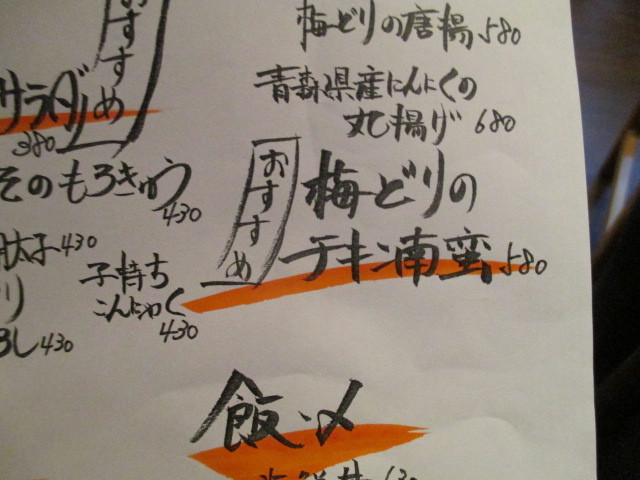 梅どりの唐揚 580
青森県産にんにくの
丸揚げ 680
おすすめ
梅どりの
チキン南蛮 580
おすすめ
サラダ
380
そのもろきゅう
430
太子 430
子持ち
こんにゃく
430
り
3し 430
飯・〆
海鮮丼